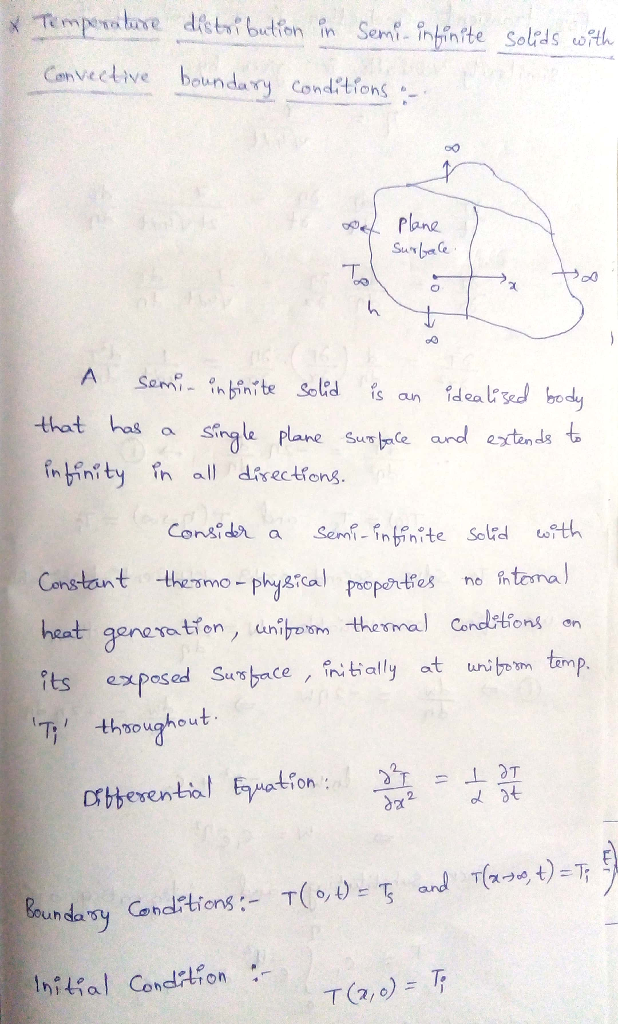 * Temperature distribution in Semi-infinite Solids with
Convective boundary conditions :-
∞
∞ Plane
Surface.
T∞ 0 x ∞
h
∞
A Semi-infinite Solid is an idealized body
that has a single plane surface and extends to
infinity in all directions.
Consider a Semi-infinite Solid with
Constant thermo-physical properties no internal
heat generation, uniform thermal Conditions on
its exposed Surface, initially at uniform temp.
'Ti' throughout.
Differential Equation: ∂²T/∂x² = 1/α ∂T/∂t
Boundary Conditions:- T(0,t) = Ts and T(x→∞, t) = Ti
Initial Condition :- T(x,0) = Ti